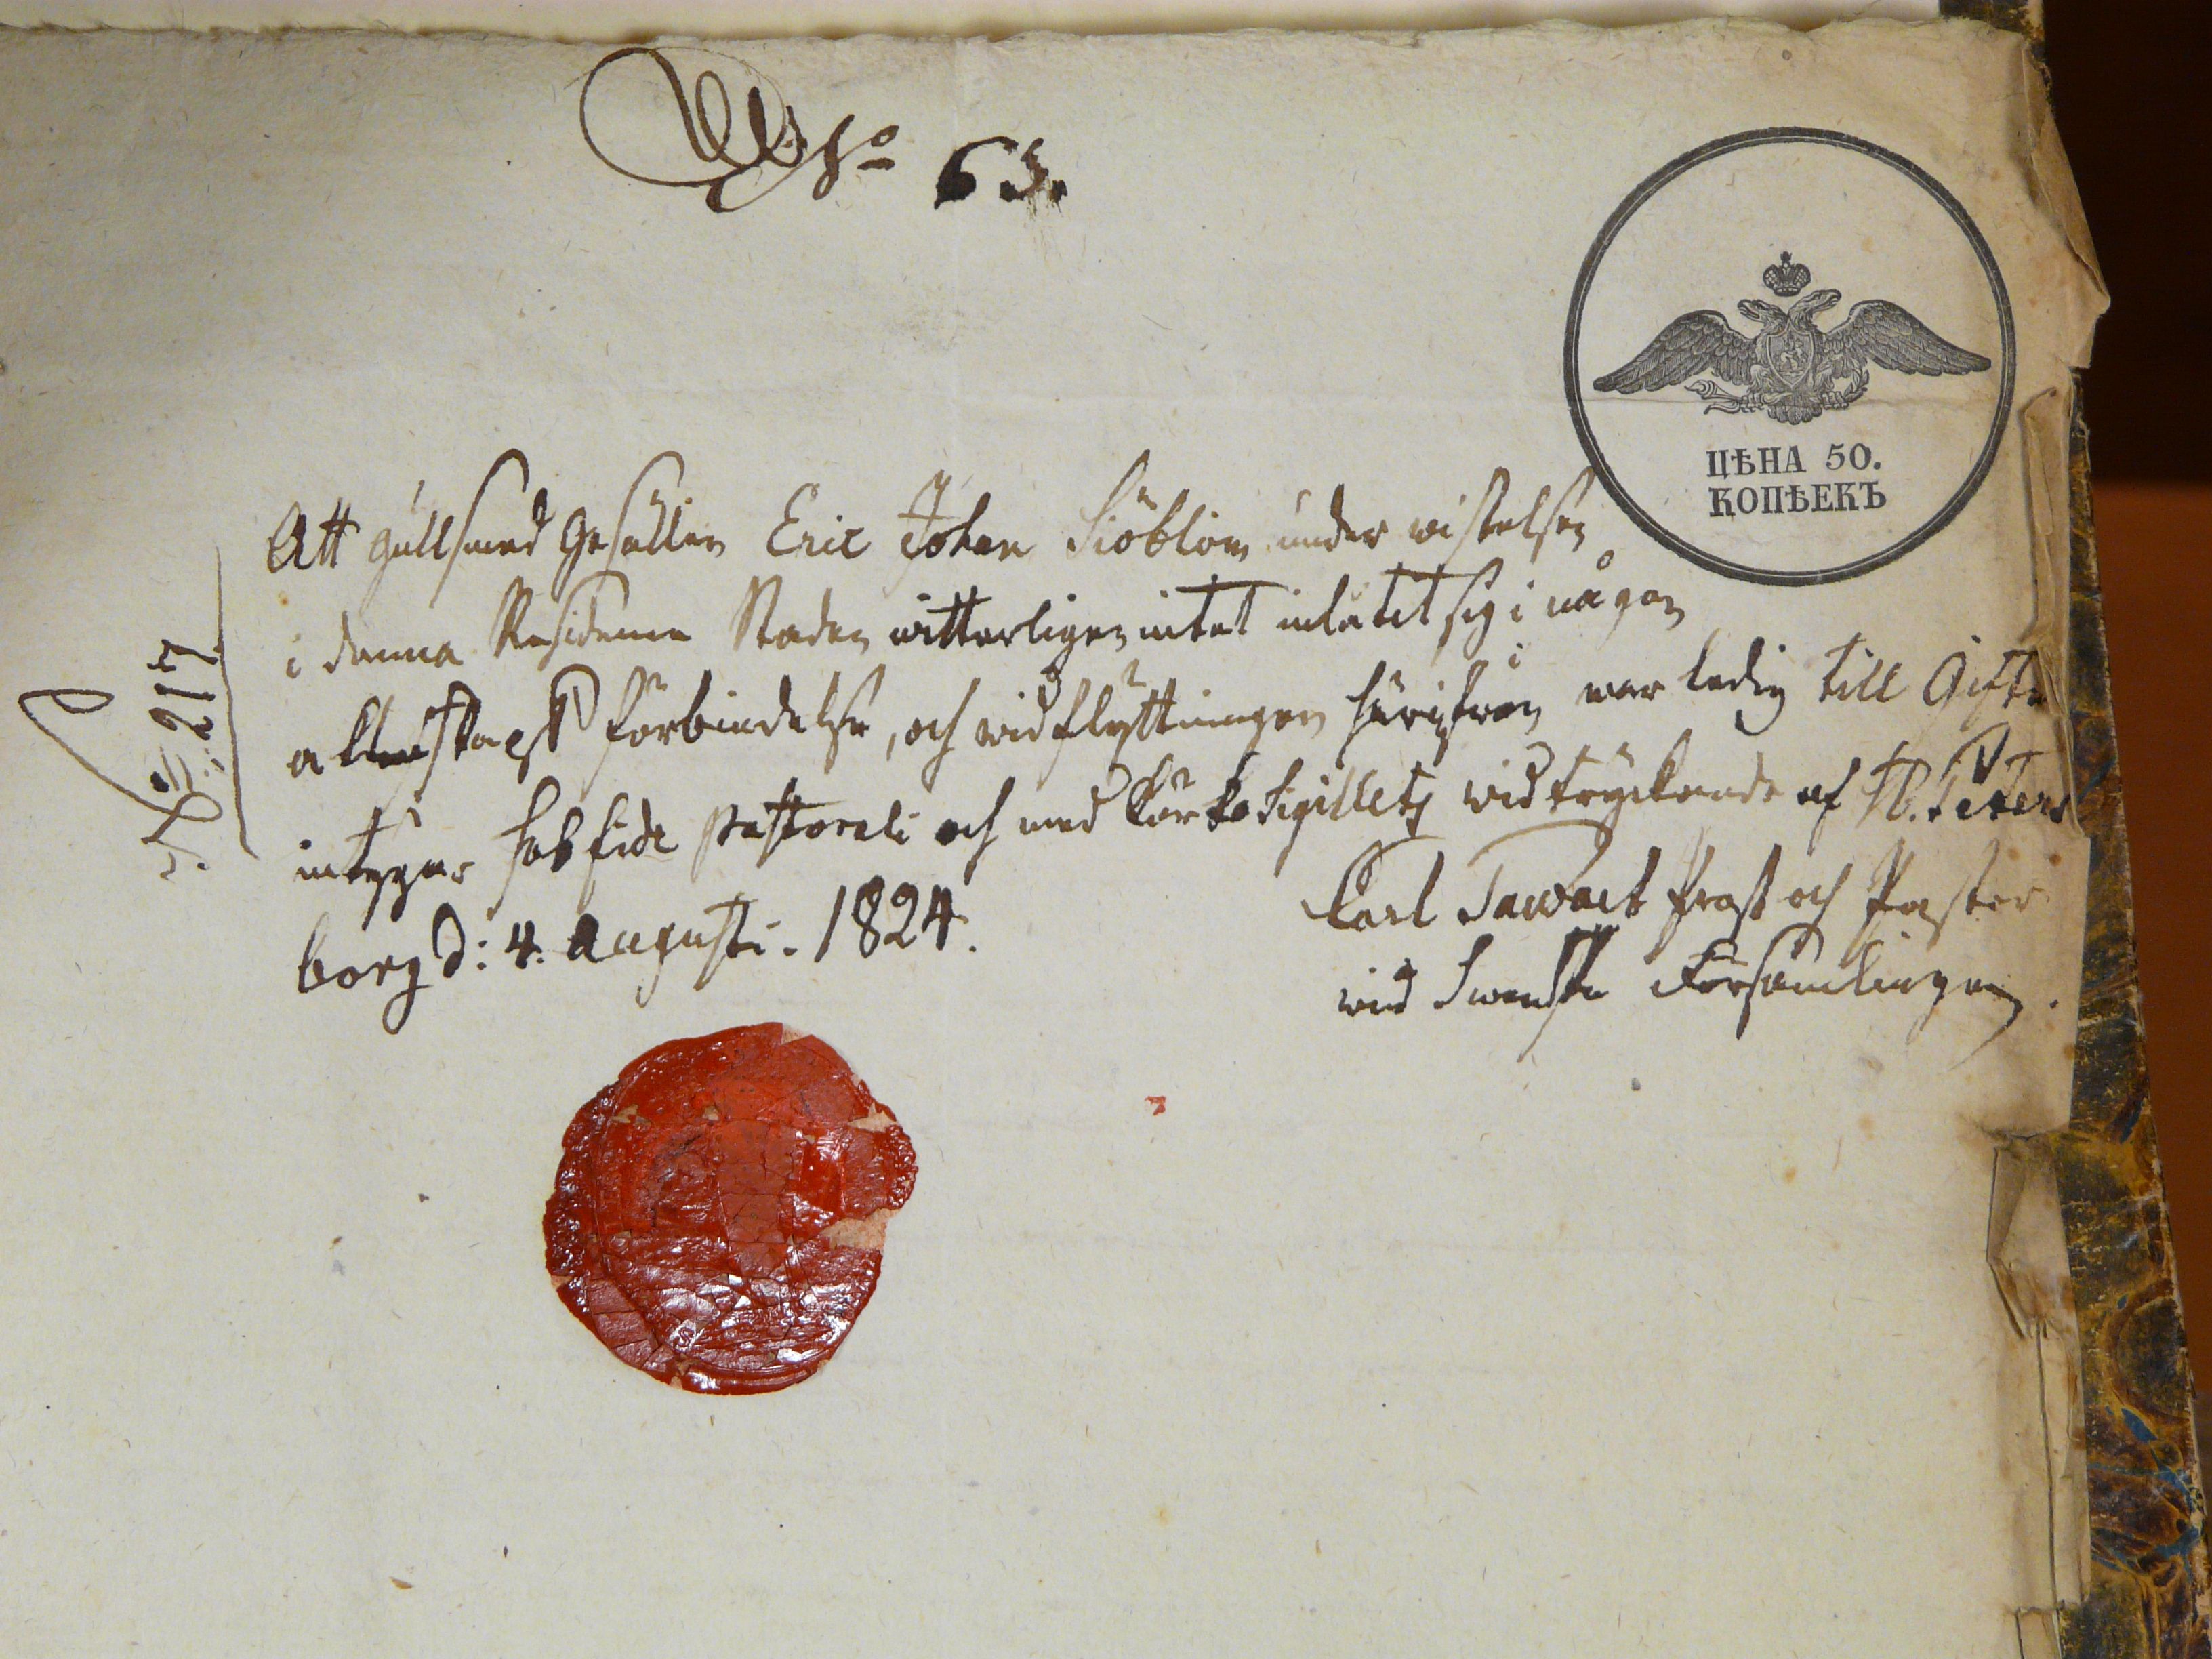 No 63.
ЦѢНА 50.
КОПѢЕКЪ
Att Gullsmed Gesällen Eric Johan Siöblom under wistelsen
i denna Residence Staden witterligen intet inlåtit sig i någon
ächtenskaps förbindelse, och wid flyttningen härifrån war ledig till Gifte
intygar sub fide pastorali och med Kÿrko Sigillets widtryckande af St. Peters
borg d: 4. Augusti. 1824.
Carl Tawast Prost och Pastor
wid Swenska Församlingen.
No 217